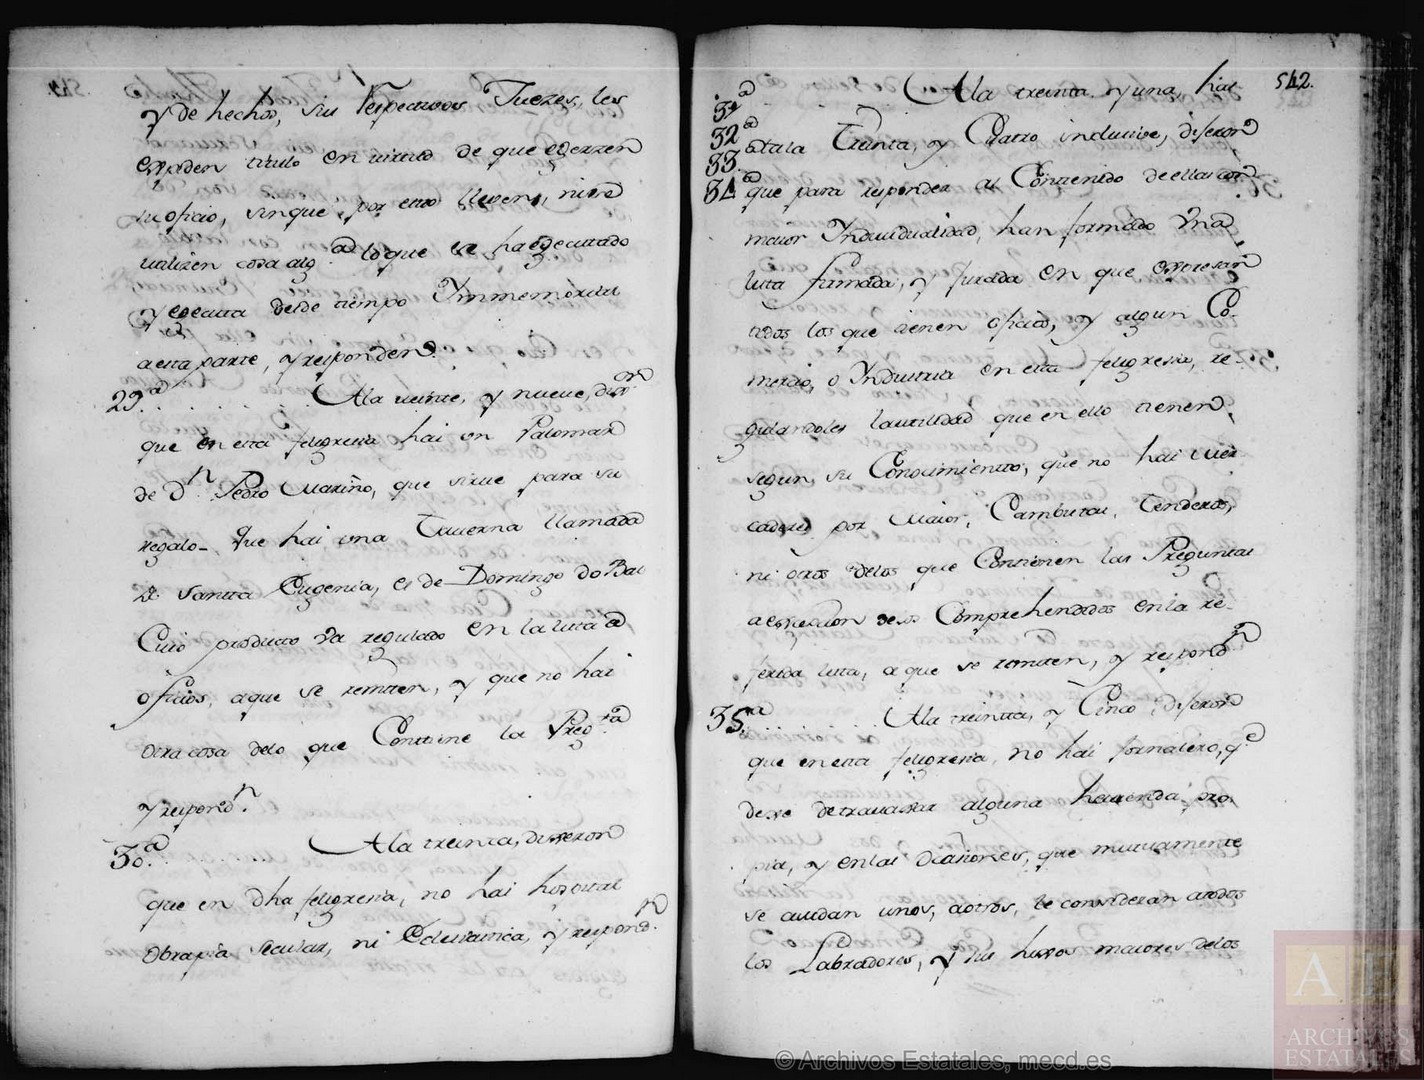 y de hechos, sus respectivos Juezes, les
expiden titulo en virtud de que egerzen
su oficio, sin que por esto lleven, ni se
utilizen cosa alg.a lo que se ha egecutado
y egecuta desde tiempo Ymmemorial
a esta parte, y responden
29.a A la veinte, y nueve, dixer.on
que en esta feligresia hai un Palomar
de D.n Pedro Mariño, que sirve para su
regalo_ que hai una Taverna llamada
de Santta Eugenia, es de Domingo do Bal
Cuio producto va regulado en la lista de
oficios, a que se remiten, y que no hai
otra cosa delo que Conttiene la Preg.ta
y respond.n
30.a A la treinta, dixeron
que en dha feligresia, no hai hospital
Obrapia secular, ni Eclesiastica, y respond.n
542.
31.a
32.a
33.
34.a
A la treinta y una, has
ta la Trunta, y Quatro inclusive, dixeron
que para responder al Contenido de ellas con
maior Yndividualidad, han formado vna
lista firmada, y jurada en que expresan
todos los que tienen oficios, y algun Co-
mercio, o Yndustria en esta feligresia, re-
gulandoles la utilidad que en ello tienen,
segun su Conocimientto, que no hai Mer
caderes por Maior, Cambistas, Tenderos,
ni otros delos que Contienen las Preguntas
a excepcion delos Comprehendidos en la re-
ferida lista, a que se remiten, y respond.n
35.a A la treintta, y Cinco, dixeron
que en esta feligresia, no hai Jornalero, q.e
dexe de travajar alguna hacienda pro
pia, y en las ocasiones, que mutuamente
se aiudan unos, a otros, se consideran a todos
los Labradores, y sus hixos maiores delos
A E
ARCHIVOS
ESTATALES
© Archivos Estatales, mecd.es